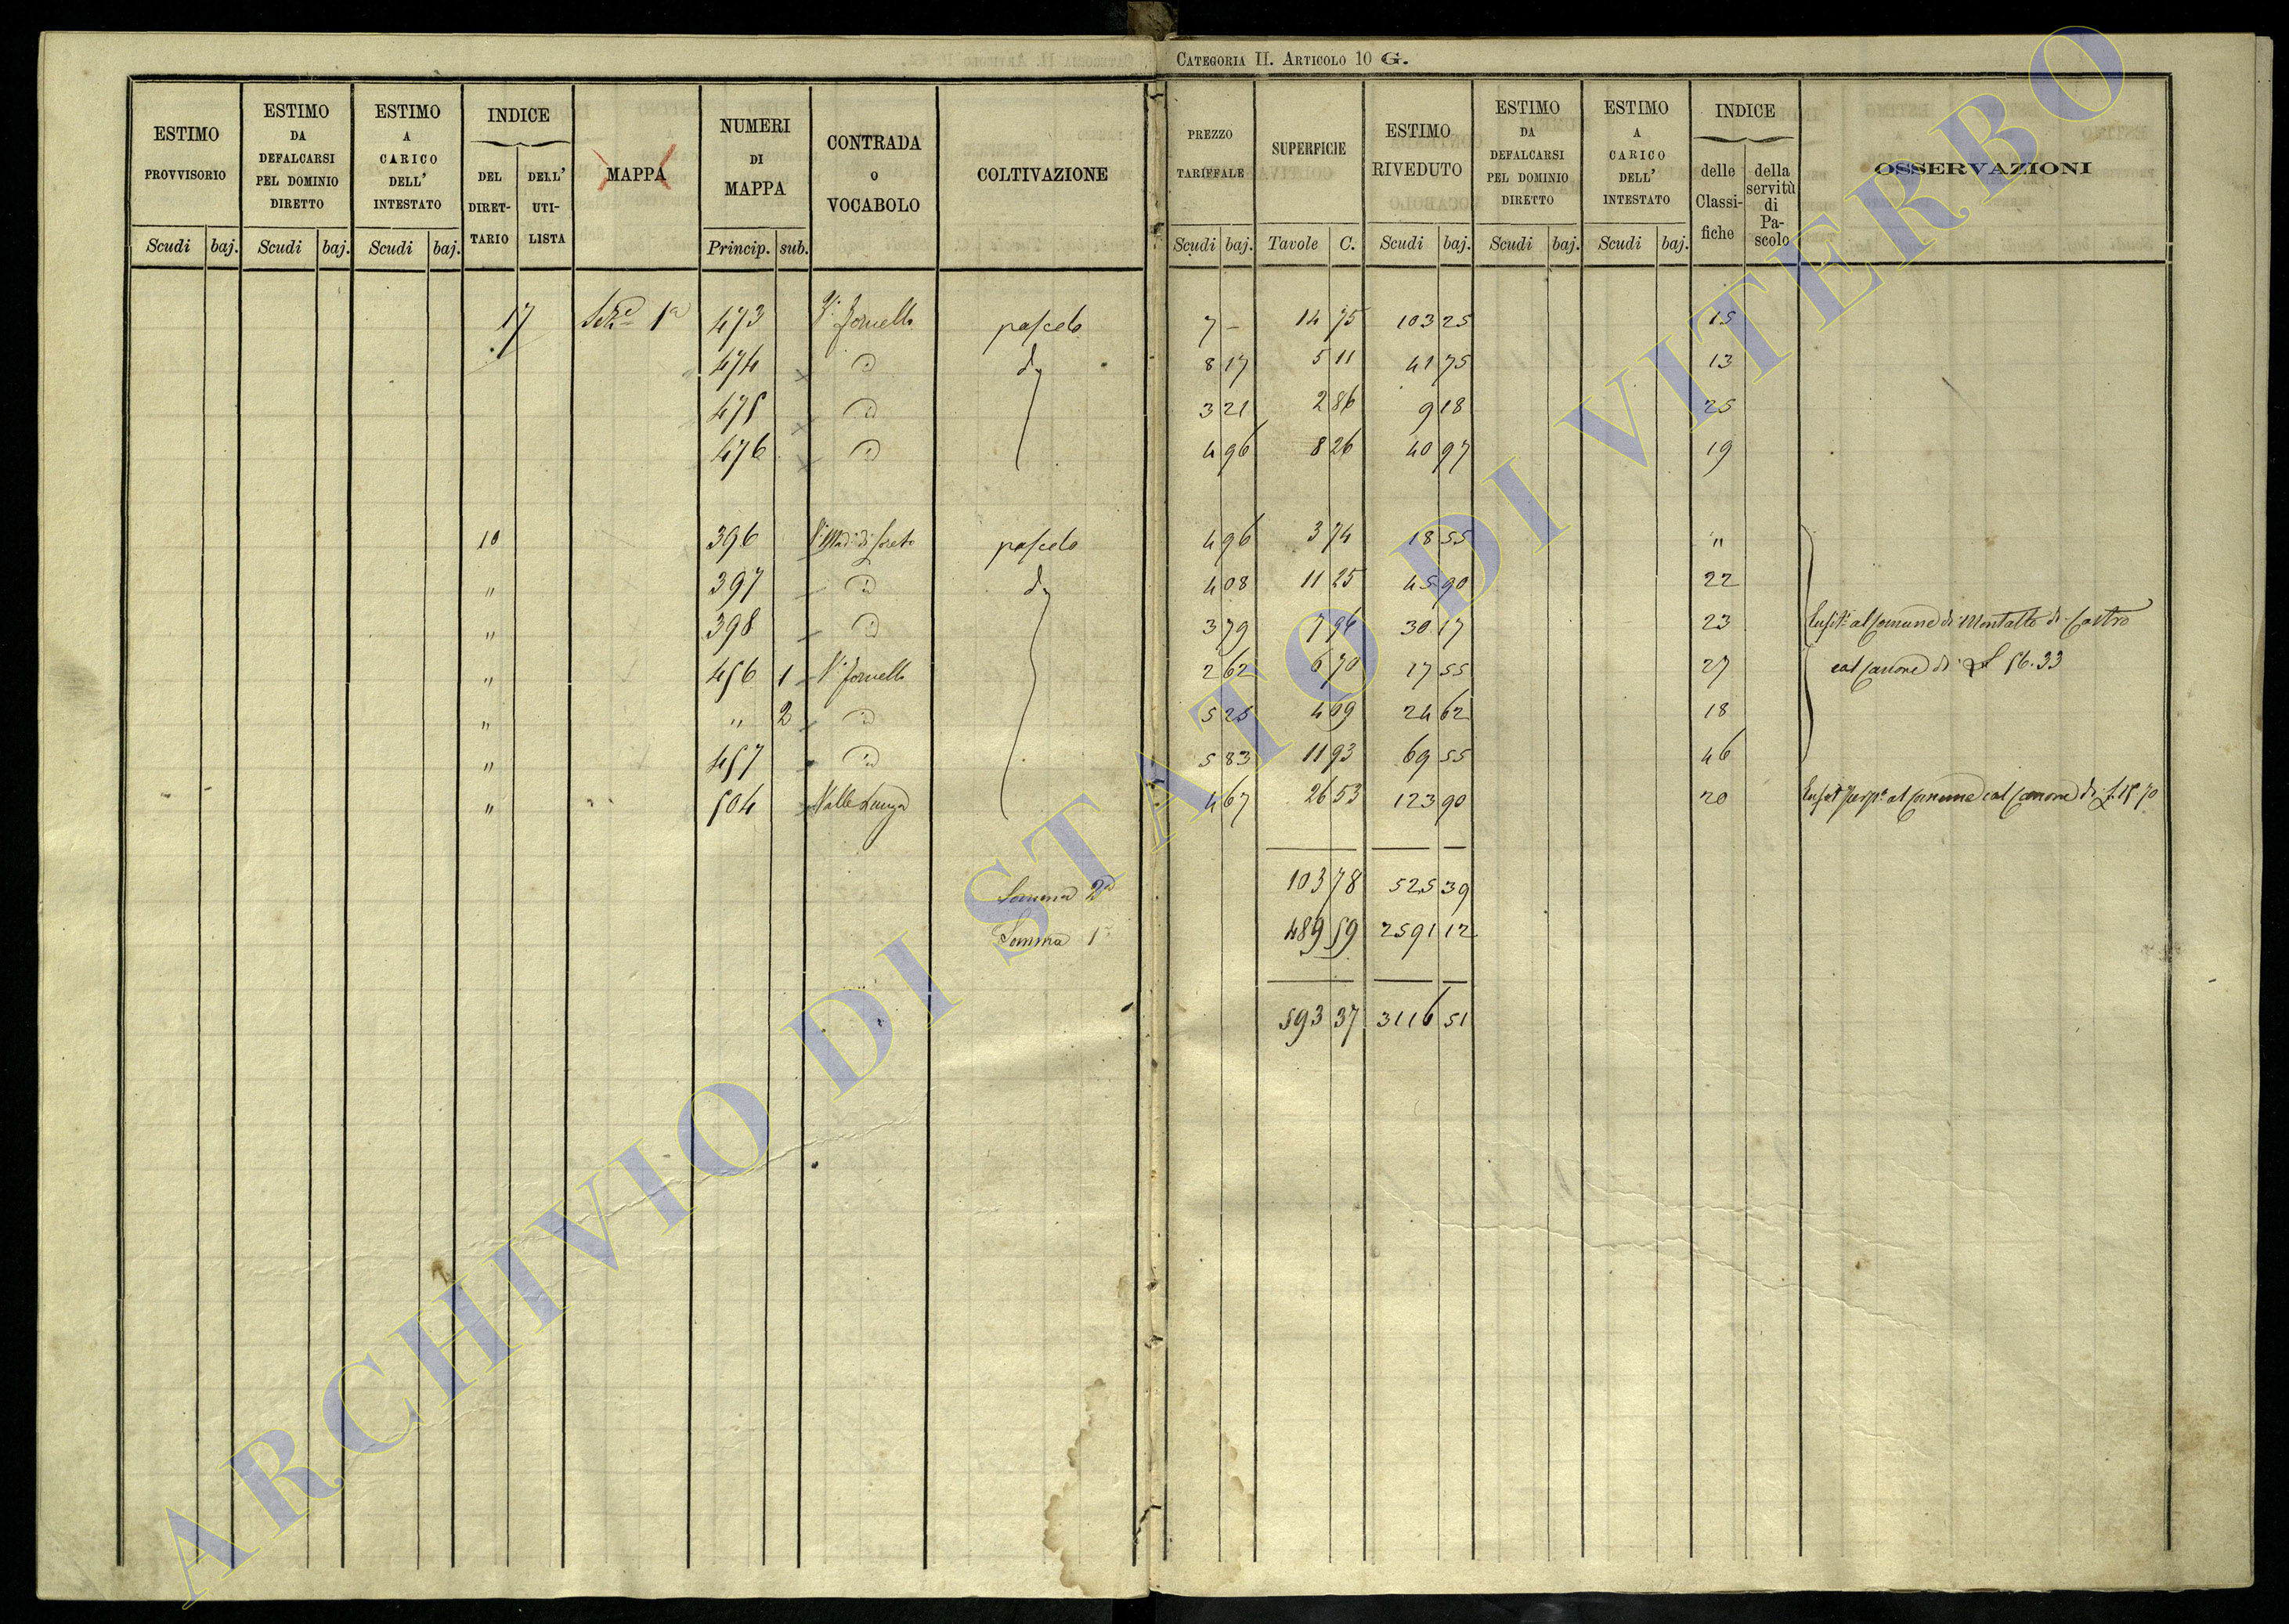 CATEGORIA II. ARTICOLO 10 G.
ESTIMO PROVVISORIO Scudi baj.
ESTIMO DA DEFALCARSI PEL DOMINIO DIRETTO Scudi baj.
ESTIMO A CARICO DELL' INTESTATO Scudi baj.
INDICE DEL DIRETTARIO DELL' UTILISTA
MAPPA
NUMERI DI MAPPA Princip. sub.
CONTRADA O VOCABOLO
COLTIVAZIONE
PREZZO TARIFFALE Scudi baj.
SUPERFICIE Tavole C.
ESTIMO RIVEDUTO Scudi baj.
ESTIMO DA DEFALCARSI PEL DOMINIO DIRETTO Scudi baj.
ESTIMO A CARICO DELL' INTESTATO Scudi baj.
INDICE delle Classifiche della servitù di Pascolo
OSSERVAZIONI
17 Sez.e 1a 473 pascolo 7 – 14 75 103 25 15
474 d. 8 17 5 11 41 75 13
475 3 21 2 86 9 18 25
476 4 96 8 26 40 97 19
10 396 pascolo 4 96 3 74 18 55 "
" 397 d. 4 08 11 25 45 90 22
" 398 3 79 7 96 30 17 23 al Comune di Montalto di Castro
" 456 1 2 62 6 70 17 55 27 col canone di 56.33
" " 2 5 25 4 69 24 62 18
" 457 5 83 11 93 69 55 46
" 504 4 67 26 53 123 90 20 al comune col canone di 15 70
Somma 2a 103 78 525 39
Somma 1a 489 59 2591 12
593 37 3116 51
ARCHIVIO DI STATO DI VITERBO